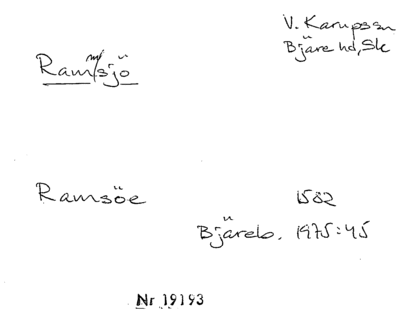 V. Karupssn
Bjäre hd, Sk
Ram/sjö
m
Ramsöe 1582
Bjäreb. 1975:45
Nr 19193